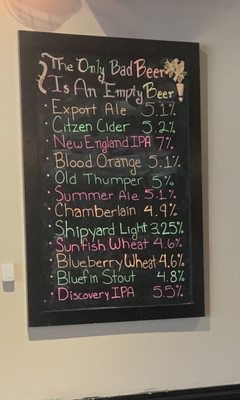 The Only Bad Beer
Is An Empty Beer
· Export Ale 5.1%
· Citzen Cider 5.2%
· New England IPA 7%
· Blood Orange 5.1%
· Old Thumper 5%
· Summer Ale 5.1%
· Chamberlain 4.9%
· Shipyard Light 3.25%
· Sunfish Wheat 4.6%
· Blueberry Wheat 4.6%
· Bluefin Stout 4.8%
· Discovery IPA 5.5%